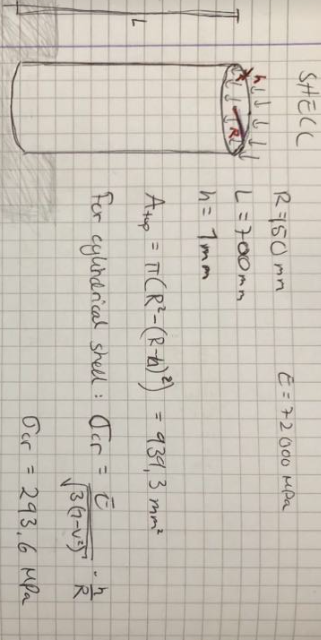 SHELL
L
h
R
R=150 mm
E = 72000 MPa
L = 700 mm
h = 1 mm
A_top = π(R²-(R-h)²) = 939,3 mm²
For cylindrical shell : σcr = E/√(3(1-ν²)) · h/R
σcr = 293,6 MPa